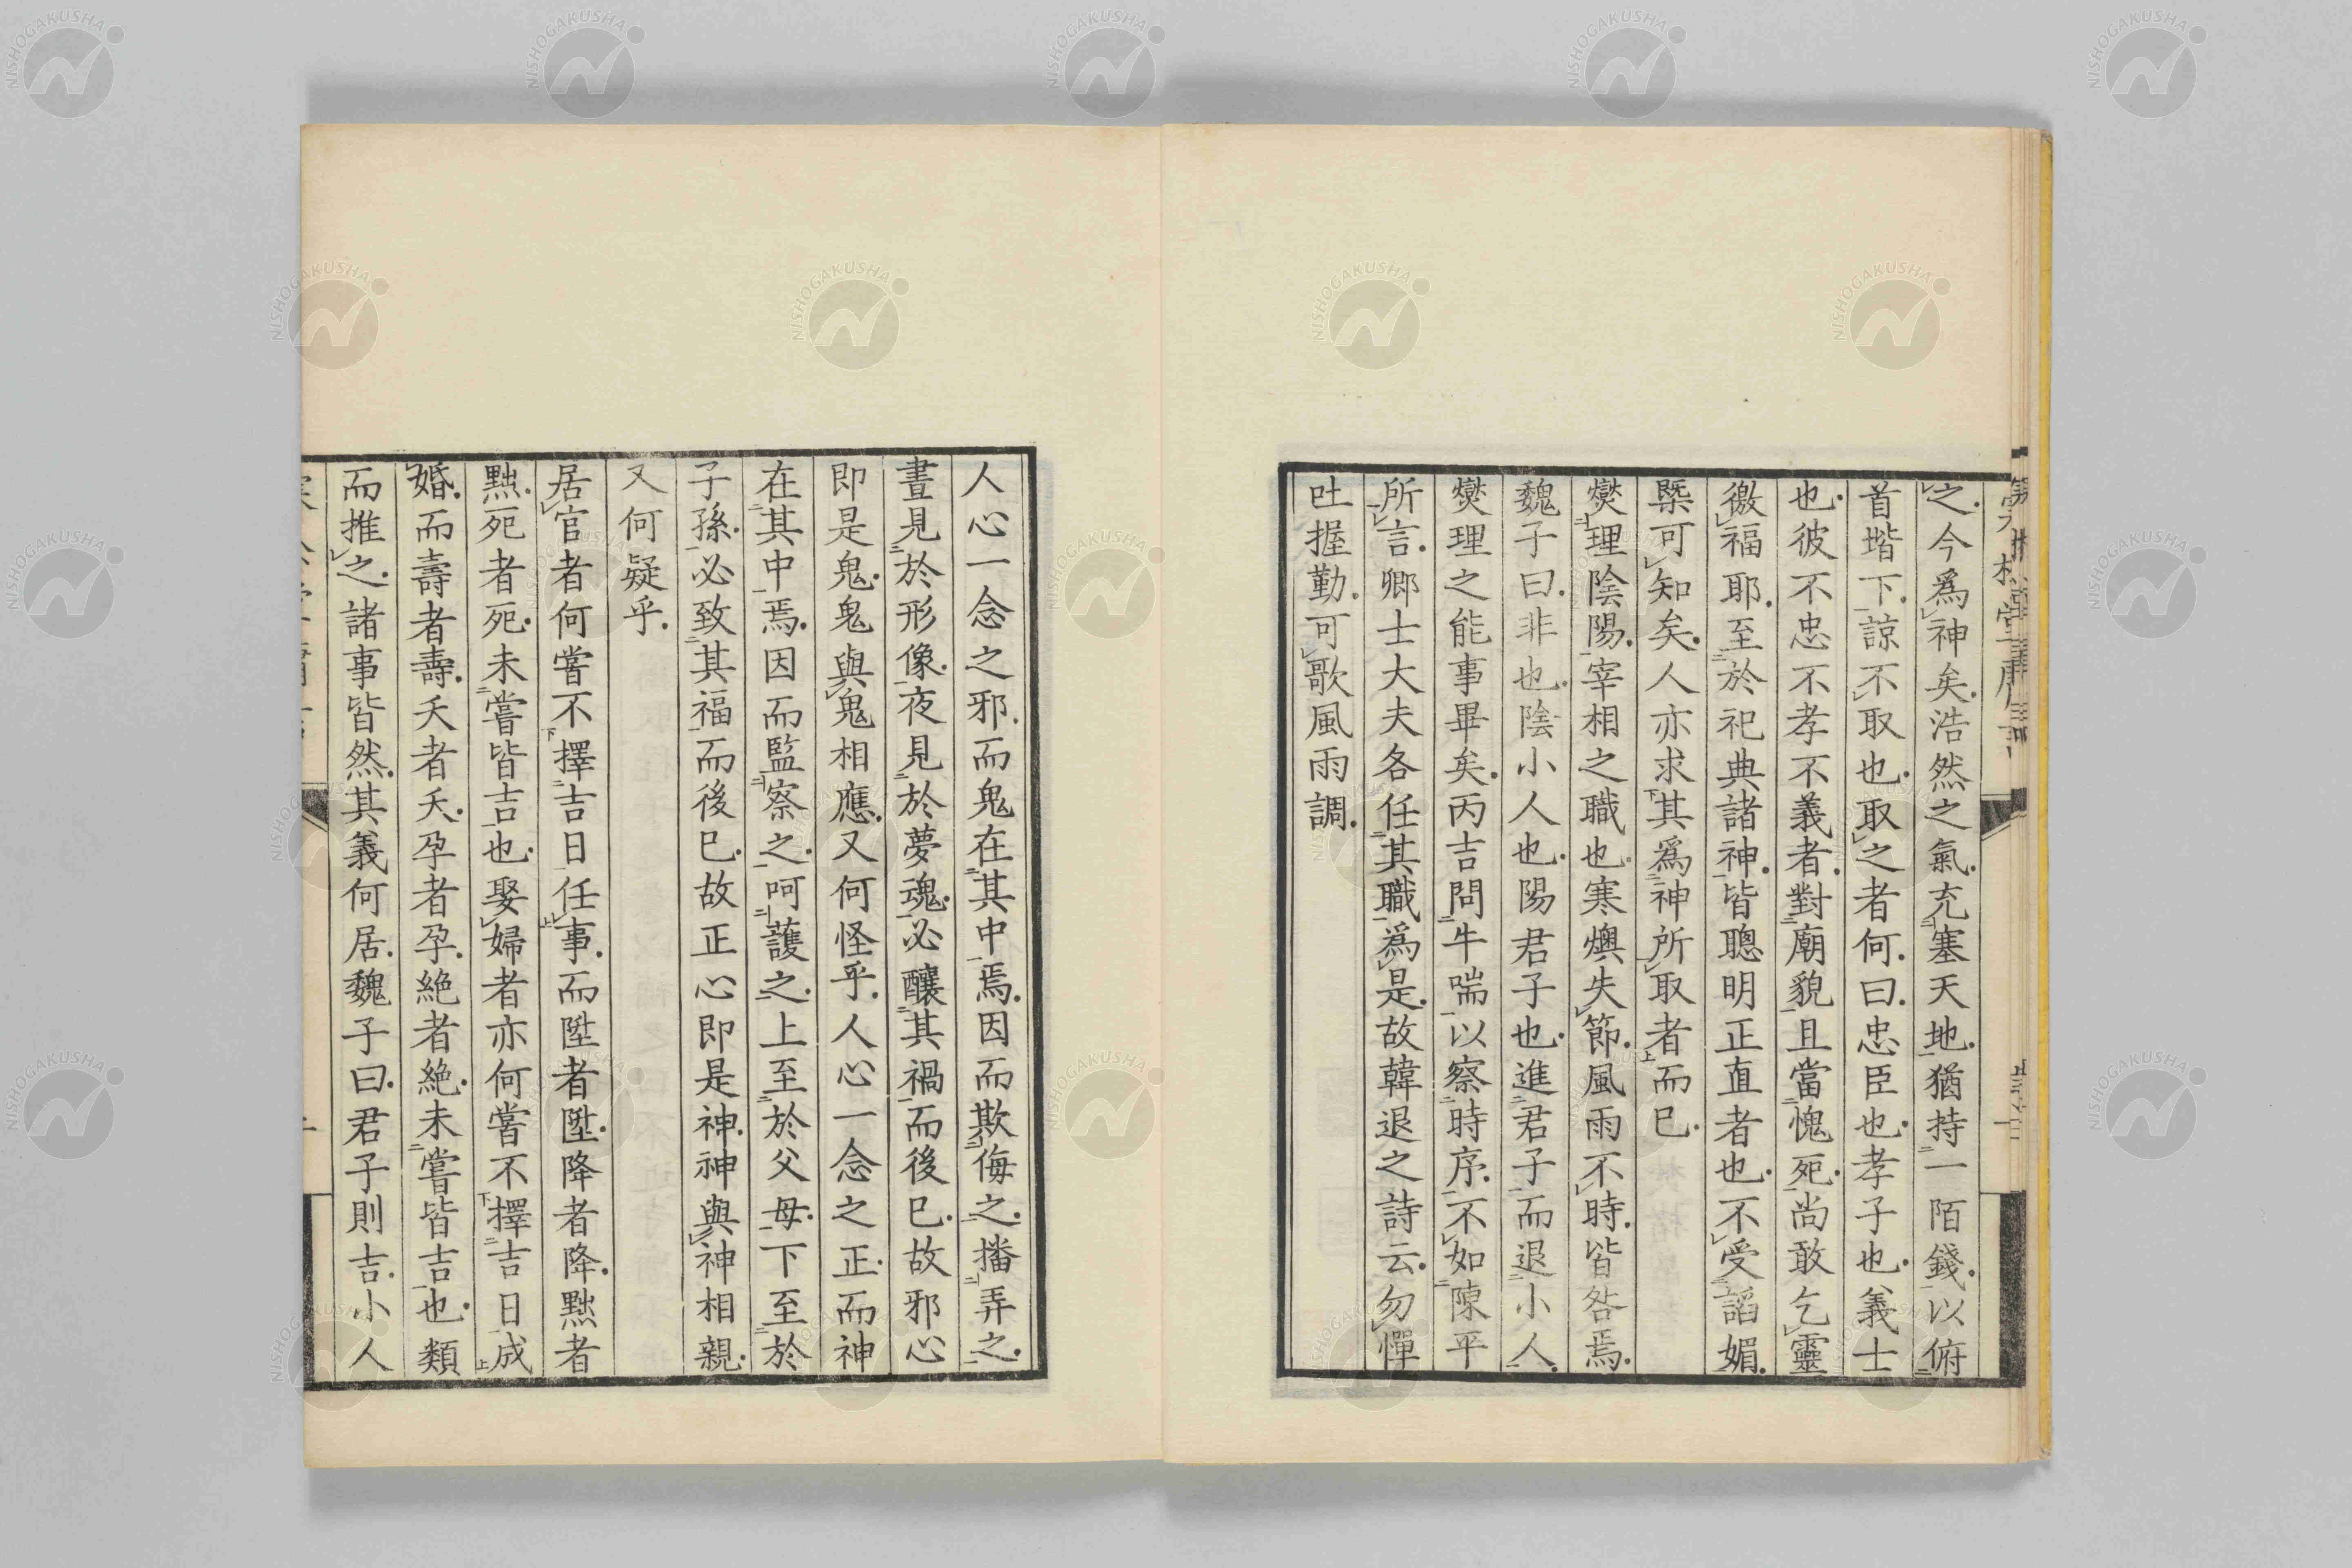 之今爲神矣浩然之氣充塞天地猶持一陌錢以俯
首堦下諒不取也取之者何曰忠臣也孝子也義士
也彼不忠不孝不義者對廟貌且當愧死尚敢乞靈
徼福耶至於祀典諸神皆聰明正直者也不受諂媚
槩可知矣人亦求其爲神所取者而已
爕理陰陽宰相之職也寒燠失節風雨不時皆咎焉
魏子曰非也陰小人也陽君子也進君子而退小人
爕理之能事畢矣丙吉問牛喘以察時序不如陳平
所言卿士大夫各任其職爲是故韓退之詩云勿憚
吐握勤可歌風雨調
人心一念之邪而鬼在其中焉因而欺侮之播弄之
晝見於形像夜見於夢魂必釀其禍而後已故邪心
即是鬼鬼與鬼相應又何怪乎人心一念之正而神
在其中焉因而監察之呵護之上至於父母下至於
子孫必致其福而後已故正心即是神神與神相親
又何疑乎
居官者何嘗不擇吉日任事而陞者陞降者降黜者
黜死者死未嘗皆吉也娶婦者亦何嘗不擇吉日成
婚而壽者壽夭者夭孕者孕絶者絶未嘗皆吉也類
而推之諸事皆然其義何居魏子曰君子則吉小人
NISHOGAKUSHA